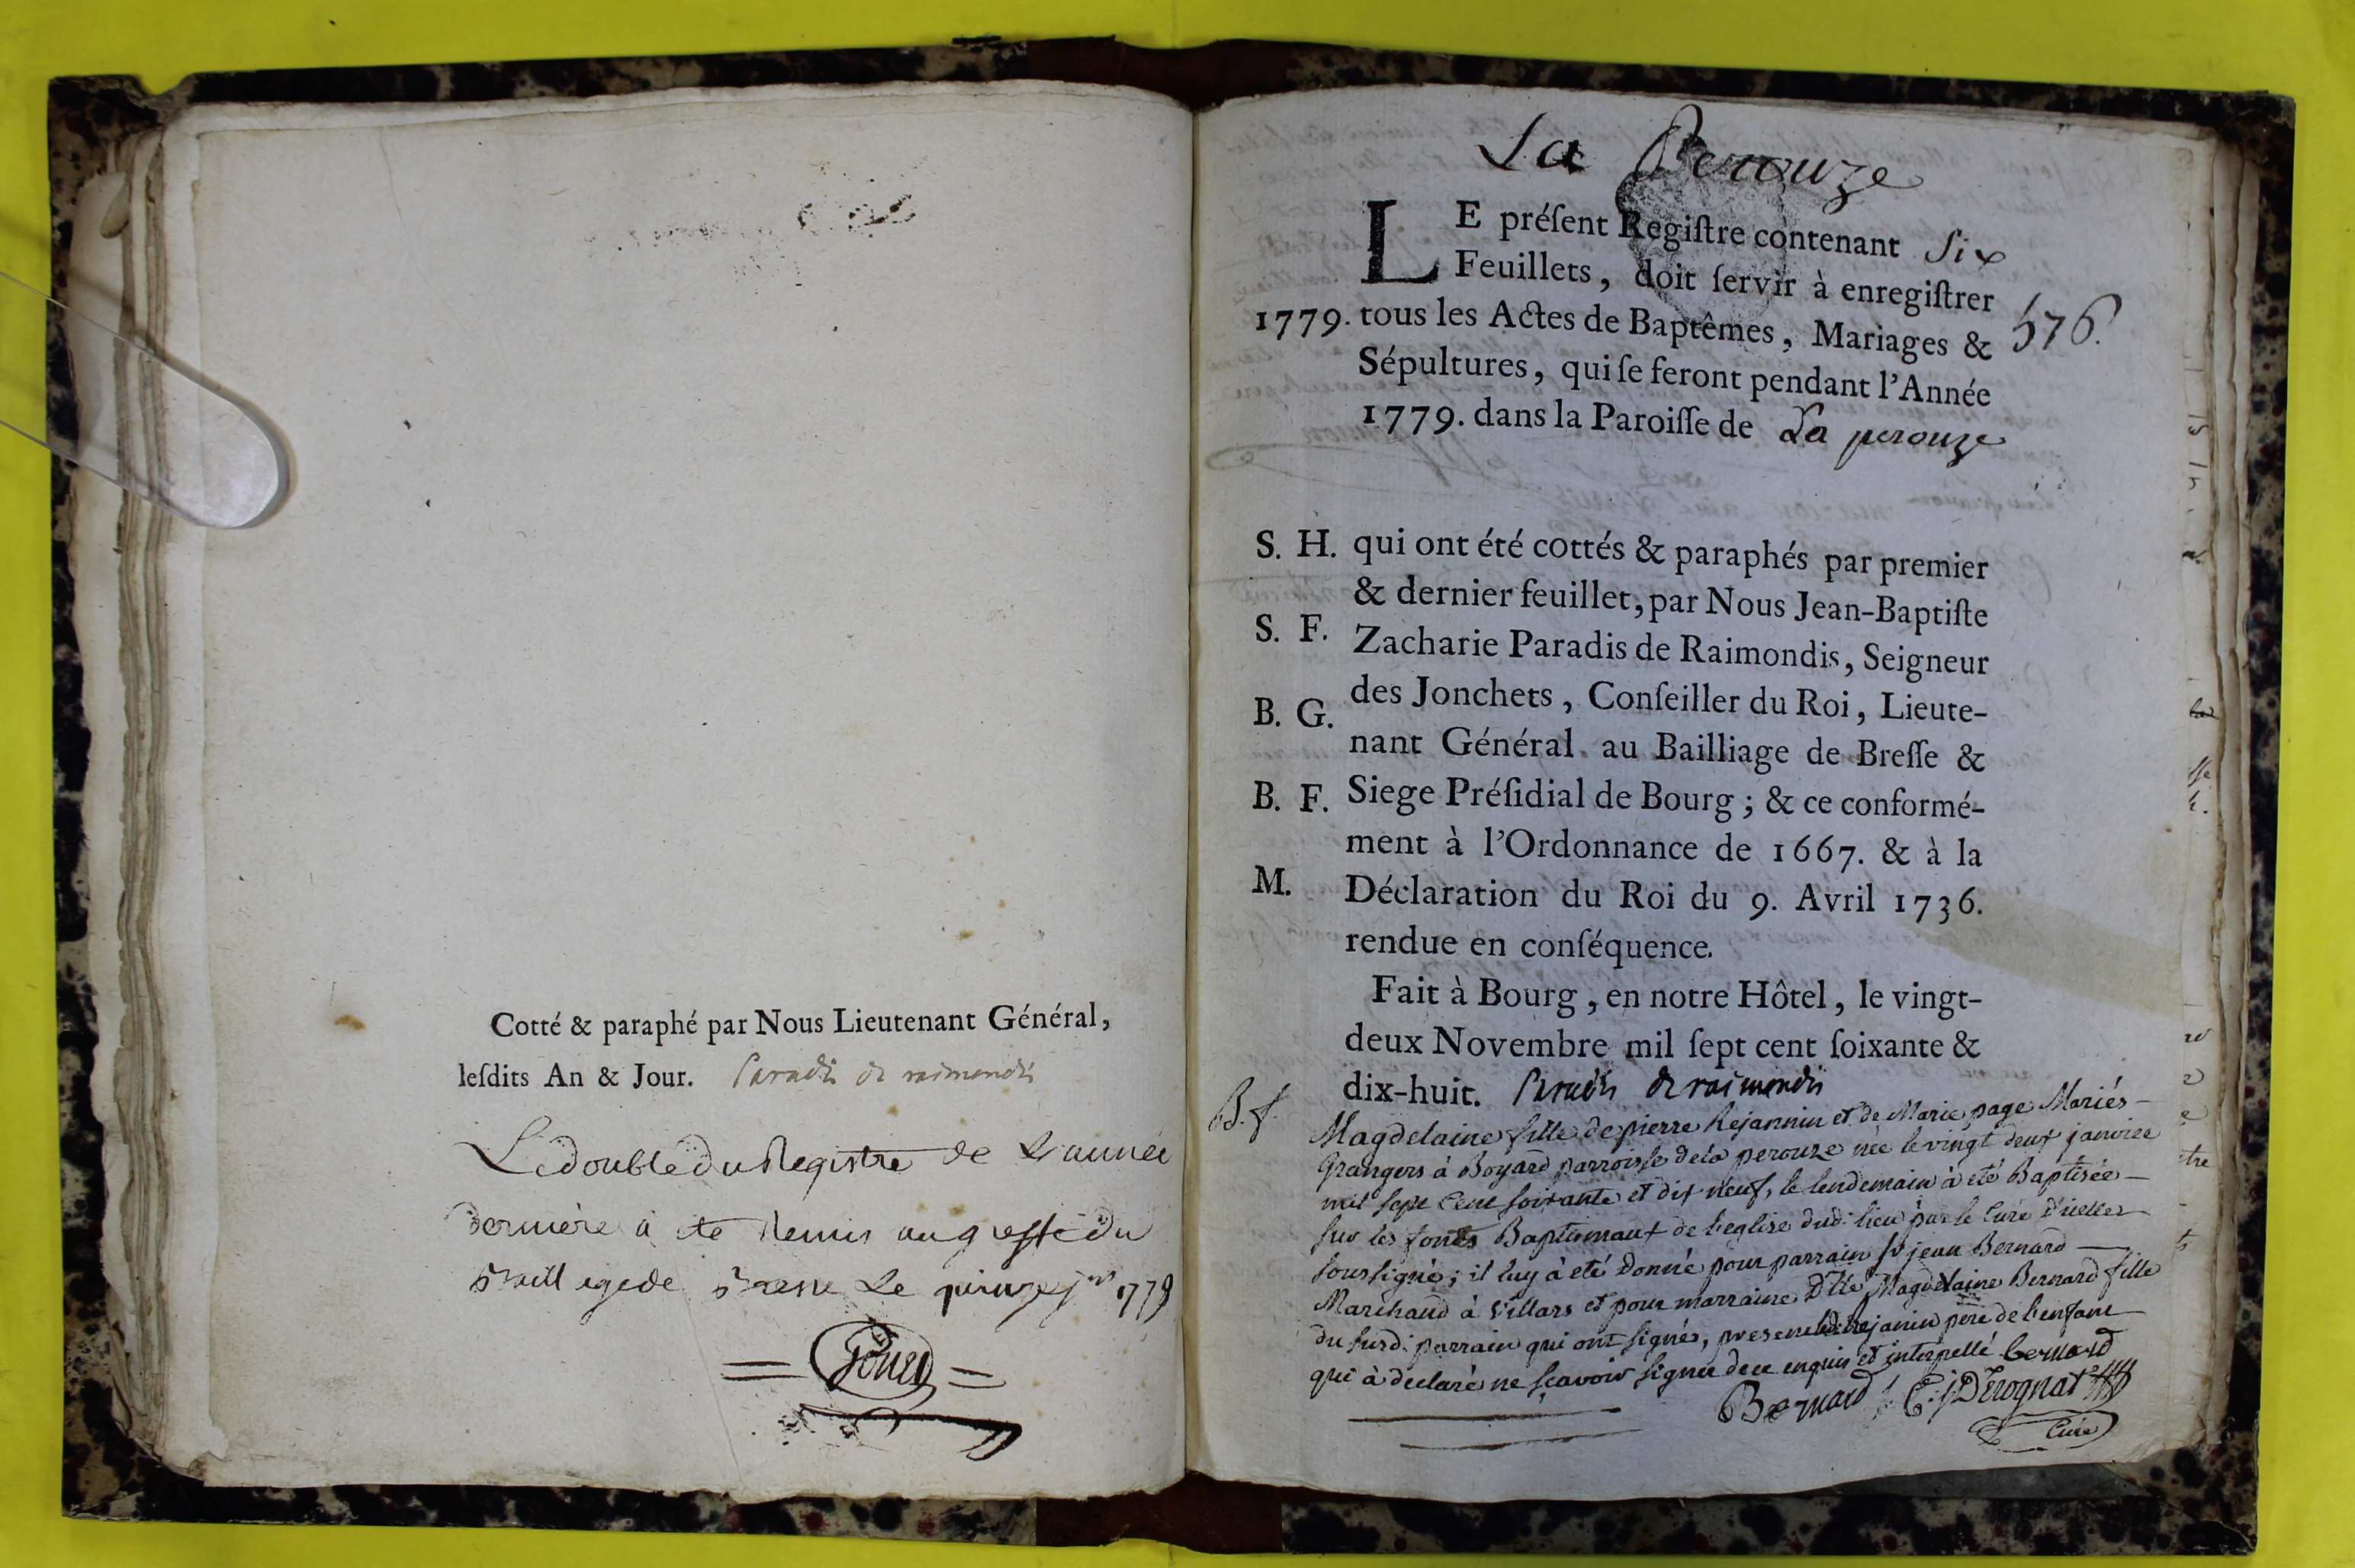 Cotté & paraphé par Nous Lieutenant Général,
leſdits An & Jour. Paradis de raimondis
Le double du Registre de L'année
derniere a ete Remis au greffe du
Bailliage de Bresse Le quinze jer 1779
La Perouze
LE préſent Regiſtre contenant Six
Feuillets, doit ſervir à enregiſtrer
1779. tous les Actes de Baptêmes, Mariages & 576.
Sépultures, qui ſe feront pendant l'Année
1779. dans la Paroiſſe de La perouze
S. H. qui ont été cottés & paraphés par premier
& dernier feuillet, par Nous Jean-Baptiſte
S. F. Zacharie Paradis de Raimondis, Seigneur
des Jonchets, Conſeiller du Roi, Lieute-
B. G. nant Général au Bailliage de Breſſe &
B. F. Siege Préſidial de Bourg; & ce conformé-
ment à l'Ordonnance de 1667. & à la
M. Déclaration du Roi du 9. Avril 1736.
rendue en conſéquence.
Fait à Bourg, en notre Hôtel, le vingt-
deux Novembre mil ſept cent ſoixante &
dix-huit. Paradis de raimondis
B. f. Magdelaine fille de pierre Rejannin et de Marie page Mariés
Grangers à Boyard parroisse de la perouze née le vingt deux janvier
mil sept Cent soixante et dix neuf, le lendemain à eté Baptisée
sur les fonds Baptismaux de l'eglise dud: lieu par le Curé d'icelle
soussigné; il luy à eté Donné pour parrain Sr jean Bernard
Marchand à Villars et pour marraine Dlle Magdelaine Bernard fille
du susd: parrain qui ont signés, present ledit Rejanin pere de l'enfant
qui à declaré ne sçavoir signer de ce enquis et interpellé bernard
Bernard C: j Derognat
Curé